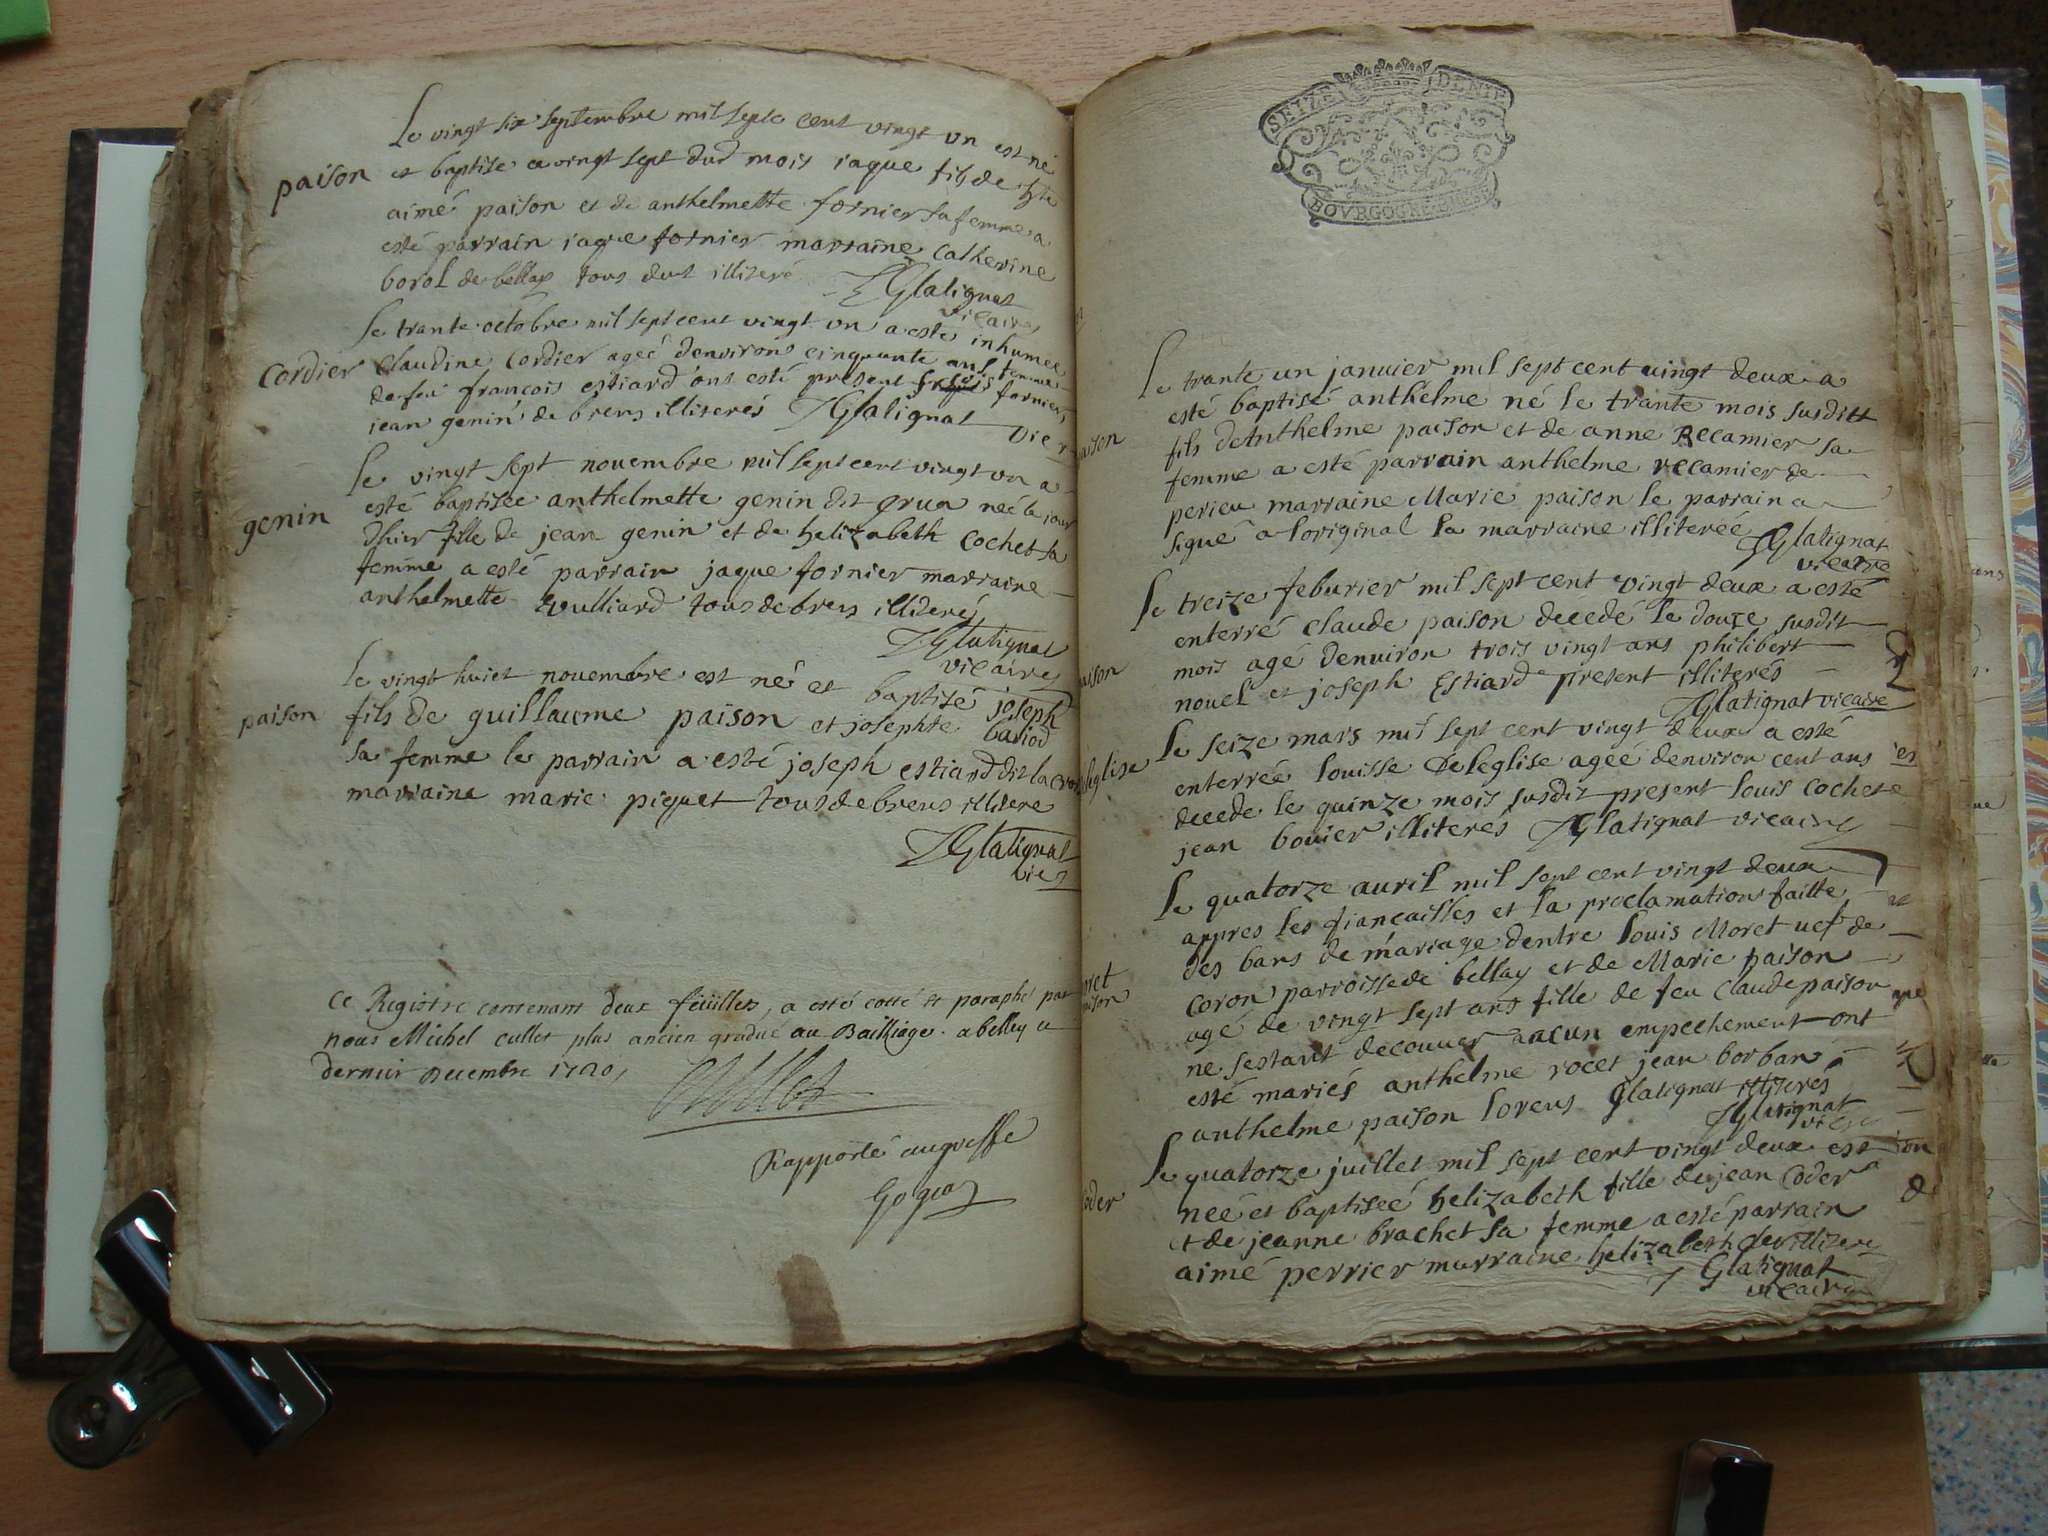 Le vingt six septembre mil septe cent vingt un est né
paison
et baptise a vingt sept dud mois iaque fils de
aimé paison et de anthelmette fornier sa femme a
esté parrain iaque fornier marraine Catherine
borol de bellay tous deut illiteré
JGlatignat
vicaire
Le trante octobre mil sept cent vingt un a esté inhumee
Cordier
Claudine Cordier ageé denviron cinquante ans femme
de feu françois estiard ont esté present fornier
iean genin de brens illiterés JGlatignat
vic
Le vingt sept nouembre mil sept cent vingt un a
genin
esté baptisée anthelmette genin dit grua neé le jour
dhier fille de jean genin et de helizabeth Cochet sa
femme a esté parrain jaque fornier marraine
anthelmette vulliard tous de brens illiterés
JGlatignat
vicaire
Le vingt huict nouembre est né et baptisé joseph
paison
fils de guillaume paison et josephte bariod
sa femme le parrain a esté joseph estiard dit la Croi
marraine marie piquet tous de brens illitere
JGlatignat
vic
Ce Registre contenant deux feuilles, a esté cotté et paraphé par
nous Michel cullet plus ancien gradué au Bailliage a belley ce
dernier decembre 1720,
Cullet
Rapporté au greffe
SEIZE DENIE
BOVRGOGNE
Le trante un janvier mil sept cent vingt deux a
esté baptisé anthelme né le trante mois susditt
aison
fils de Anthelme paison et de anne Recamier sa
femme a esté parrain anthelme recamier de
perieu marraine Marie paison le parrain a
signé a loriginal la marraine illitereé JGlatignat
vicaire
Le treize feburier mil sept cent vingt deux a esté
enterré Claude paison decedé le douze susdit
aison
mois agé denuiron trois vingt ans philibert
nouel et joseph Estiard present illiterés
JGlatignat vicaire
Le seize mars mil sept cent vingt deux a esté
leglise
enterrée louisse Deleglise ageé denviron cent ans
decede le quinze mois susdit present louis cochet e
jean bouier illiterés JGlatignat vicaire
Le quatorze auril mil sept cent vingt deux
appres les fiançailles et la proclamation faitte
des bans de mariage dentre louis Moret uef de
oret
Coron parroisse de bellay et de Marie paison
aison
agé de vingt sept ans fille de feu Claude paison
ne sestant decouuer aucun empechement ont
esté mariés anthelme rocet jean borban
anthelme paison lorens Glatignat illiterés
JGlatignat
vic
Le quatorze juillet mil sept cent vingt deux est
oder
neé et baptiseé helizabeth fille de jean Coder
et de jeanne brachet sa femme a esté parrain
aimé perrier marraine helizabeth
J Glatignat
vicaire